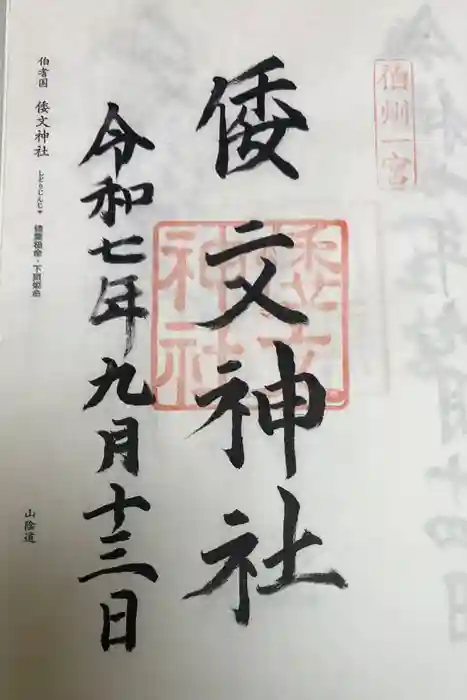 伯州一宮
倭文神社
倭文
神社
令和七年九月十三日
伯耆国 倭文神社 しとりじんじゃ 健葉槌命・下照姫命
山陰道